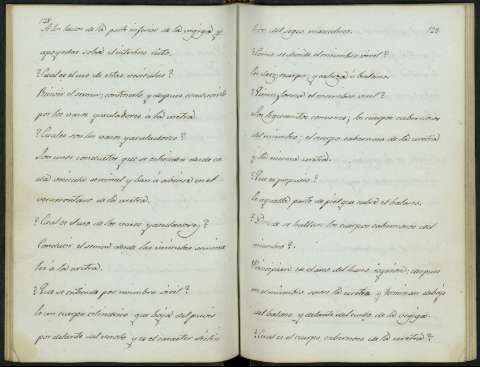 128.
A los lados de la parte inferior de la vegiga y
apoyadas sobre el intestino recto.
¿Cual es el uso de estas vesiculas?
Recivir el semen; contenerlo, y despues
por los vasos eyaculadores à la uretra.
¿Cuales son los vasos eyaculadores?
Son unos conductos que se estienden desde ca
da vesicula seminal y van à abrirse en el
verumontano de la uretra.
¿Cual es el uso de los vasos eyaculadores?
Conducir el semen desde las vesiculas semina
les à la uretra.
¿Que se entiende por miembro viril?
Es un cuerpo cilindrico que baja del puvis
por delante del escroto y es el caracter distin
129
tivo del segso masculino.
¿Como se divide el miembro viril?
En cuerpo y cabeza ò balano.
¿Quien forma el miembro viril?
Los tegumentos comunes; los cuerpos cabernosos
del miembro; el cuerpo cabernoso de la uretra
y la misma uretra.
¿Que es prepucio?
Es aquella parte de piel que cubre el balano.
¿Donde se hallan los cuerpos cabernosos del
miembro?
Principian en el ramo del hueso isquion; despues
en el miembro sobre la uretra y terminan debajo
del balano y delante del cuello de la vegiga.
¿Cual es el cuerpo cabernoso de la uretra?